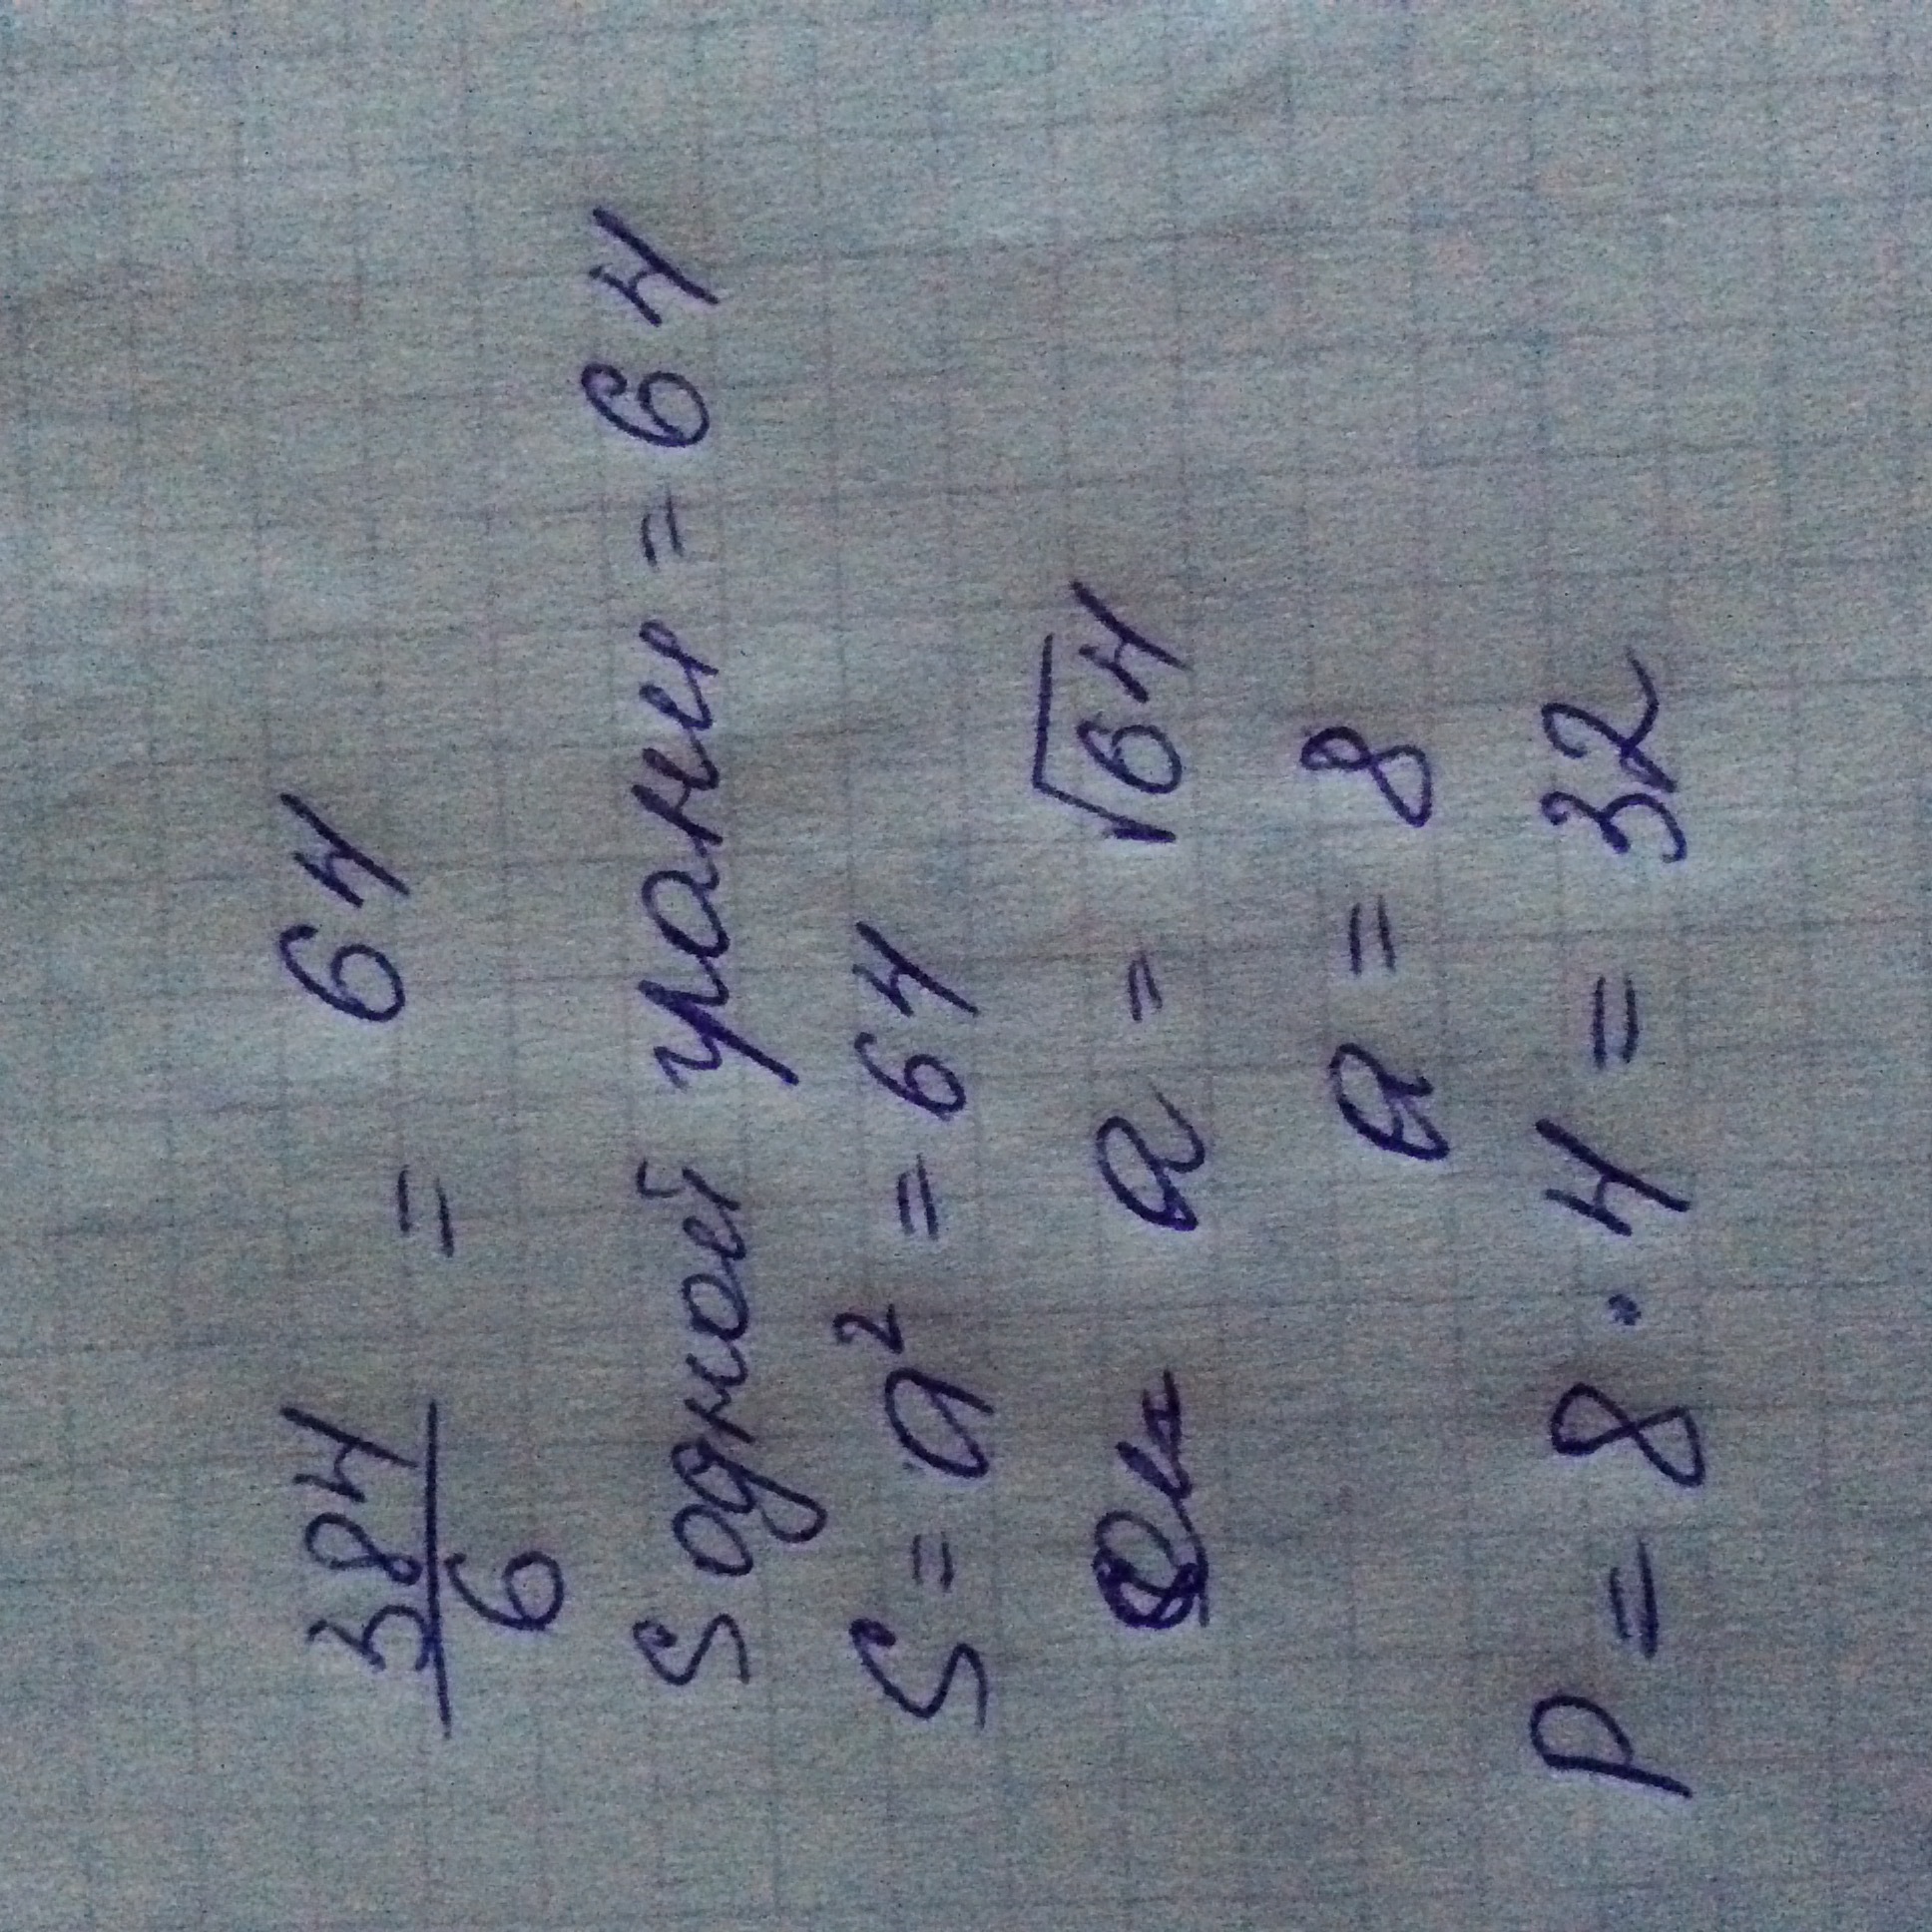 384/6 = 64
S одной грани = 64
S = a² = 64
a = √64
a = 8
P = 8 · 4 = 32